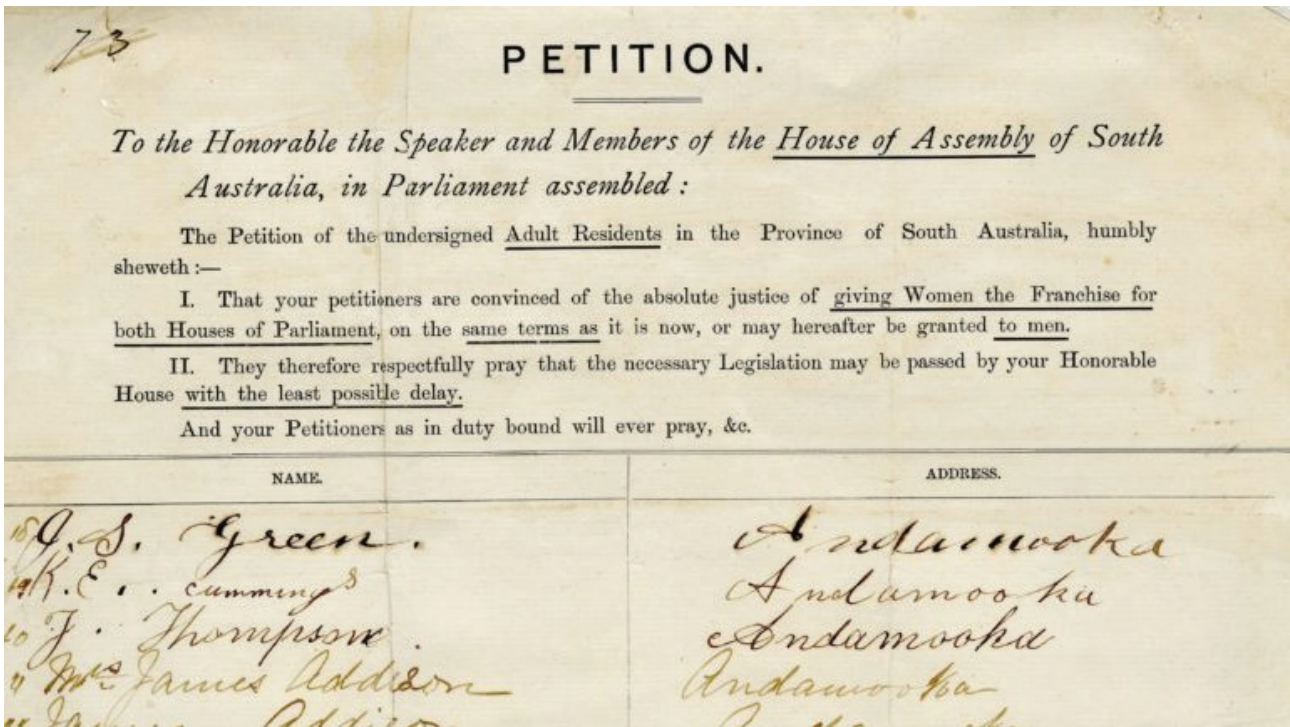 73
PETITION.
To the Honorable the Speaker and Members of the House of Assembly of South
Australia, in Parliament assembled :
The Petition of the undersigned Adult Residents in the Province of South Australia, humbly
sheweth :—
I. That your petitioners are convinced of the absolute justice of giving Women the Franchise for
both Houses of Parliament, on the same terms as it is now, or may hereafter be granted to men.
II. They therefore respectfully pray that the necessary Legislation may be passed by your Honorable
House with the least possible delay.
And your Petitioners as in duty bound will ever pray, &c.
NAME. ADDRESS.
S. Green. Andamooka
K. E. Cummings Andamooka
J. Thompson. Andamooka
Mrs James Addison Andamooka
James Addison